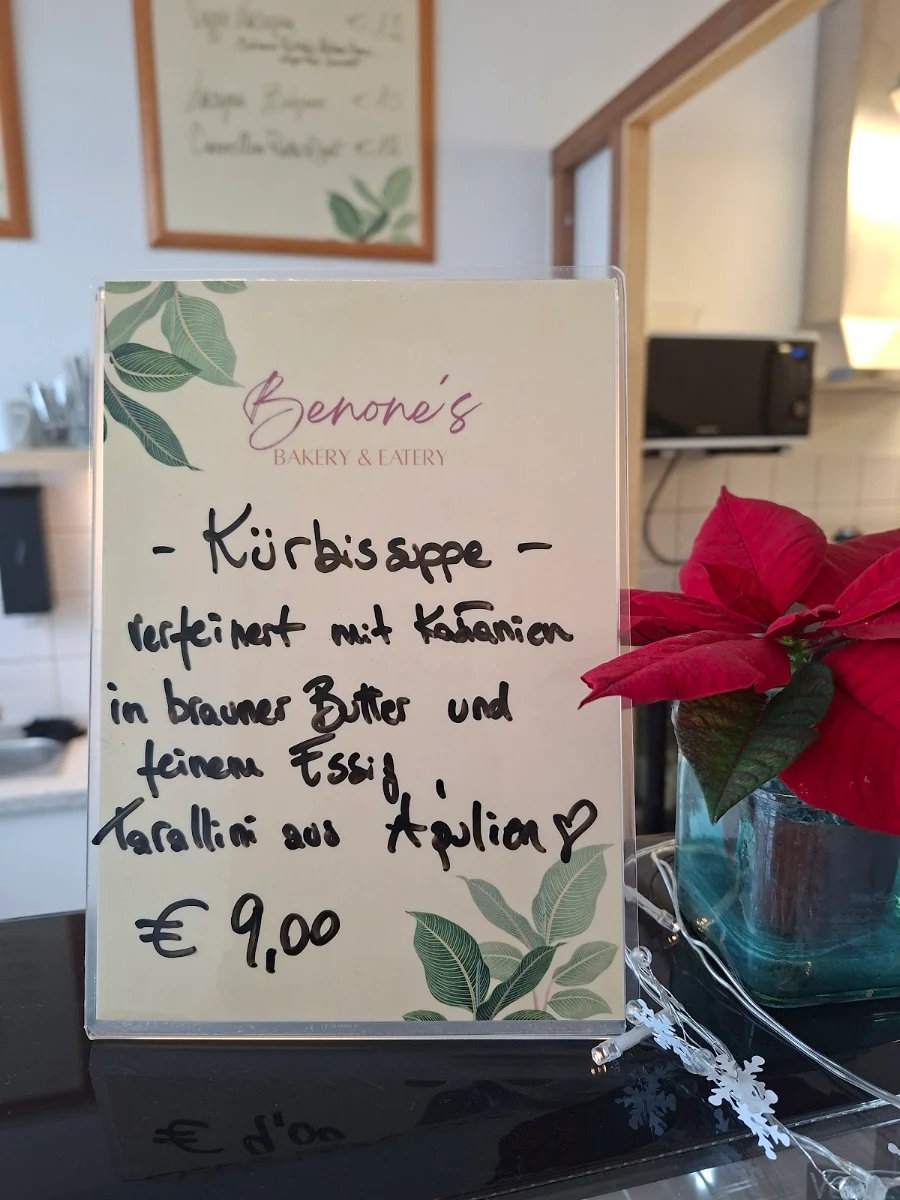 Benone's
BAKERY & EATERY
- Kürbissuppe -
verfeinert mit Kastanien
in brauner Butter und
feinem Essig
Tarallini aus Apulien ♡
€ 9,00